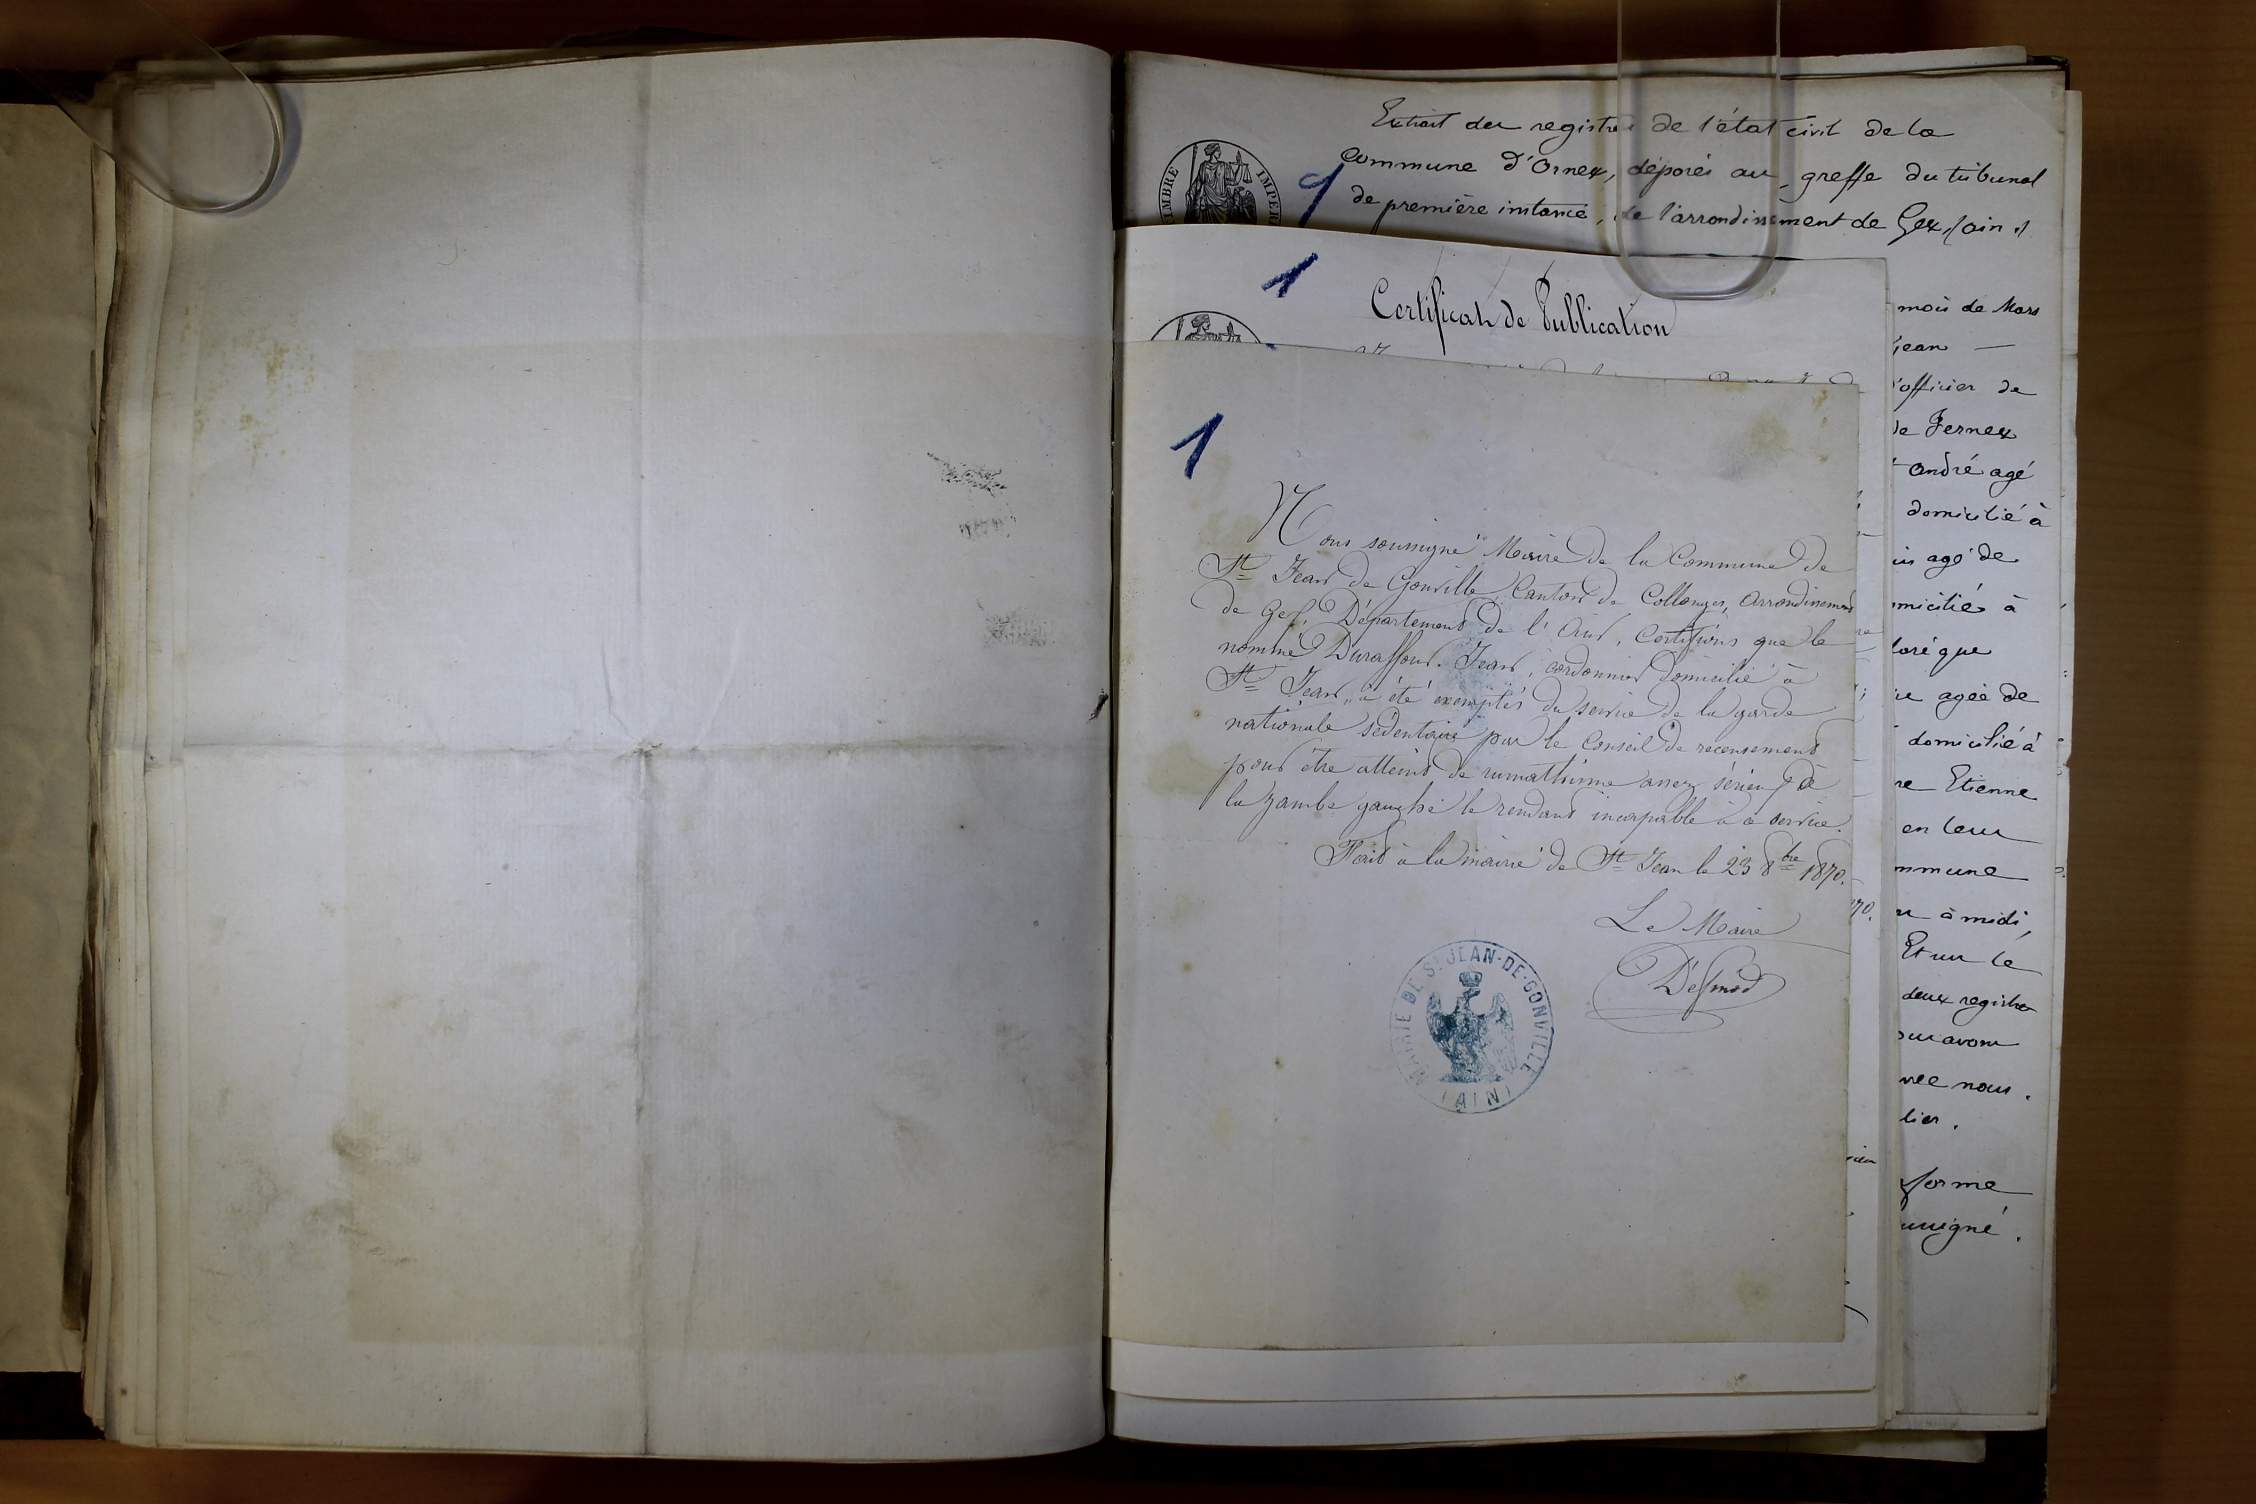 Extrait des registres de l'état civil de la
commune d'Ornex, déposés au greffe du tribunal
de première instance, de l'arrondissement de Gex, (ain)
TIMBRE IMPER
1
Certificat de Publication
1
Nous soussigné Maire de la Commune de
St Jean de Gonville, Canton de Collonges, arrondissement
de Gex, Département de l'Ain, Certifions que le
nommé Duraffour Jean, cordonnier domicilié à
St Jean, à été exemptés du service de la garde
nationale sédentaire par le Conseil de recensement
pour être atteint de rumathisme assez sérieux à
la jambe gauche le rendant incapable à ce service.
Fait à la mairie de St Jean le 23 8bre 1870.
Le Maire
MAIRIE DE ST JEAN-DE-GONVILLE
(AIN)
mois de Mars
jean
l'officier de
de Fernex
andré agé
domicilié à
agé de
omicilié à
laré que
agée de
domicilié à
re Etienne
en leur
mmune
à midi,
Et sur le
deux registres
ous avons
vec nous.
lier.
forme
ussigné.
70.